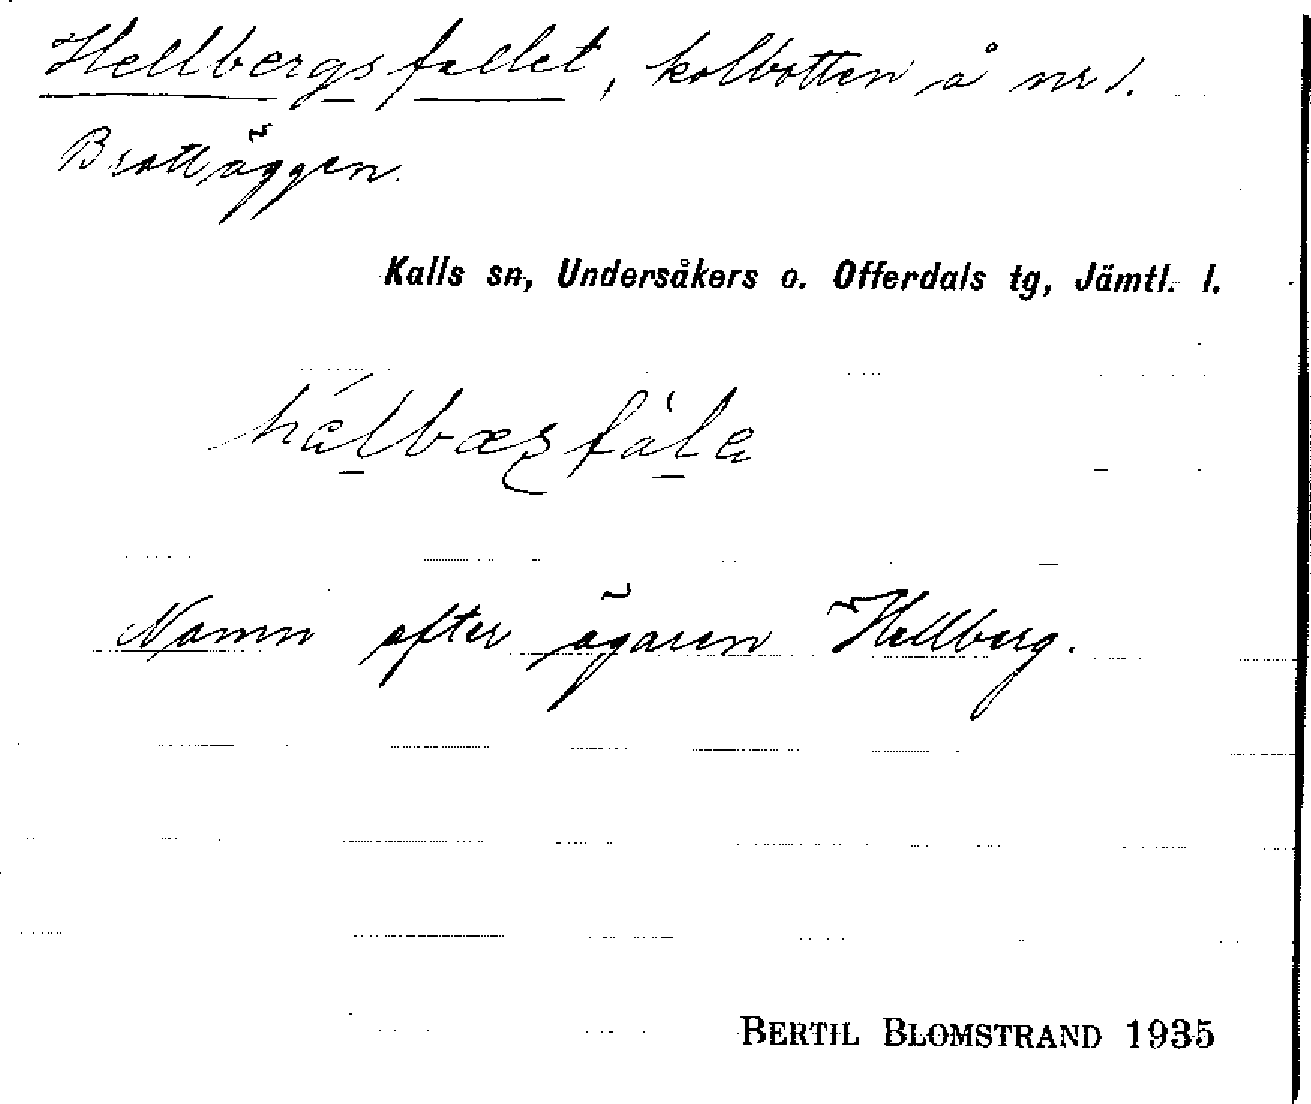 Hellbergsfallet, kolbotten å nr 1.
Brattäggen.
Kalls sn, Undersåkers o. Offerdals tg, Jämtl. l.
Namn efter ägaren Hellberg.
BERTIL BLOMSTRAND 1935